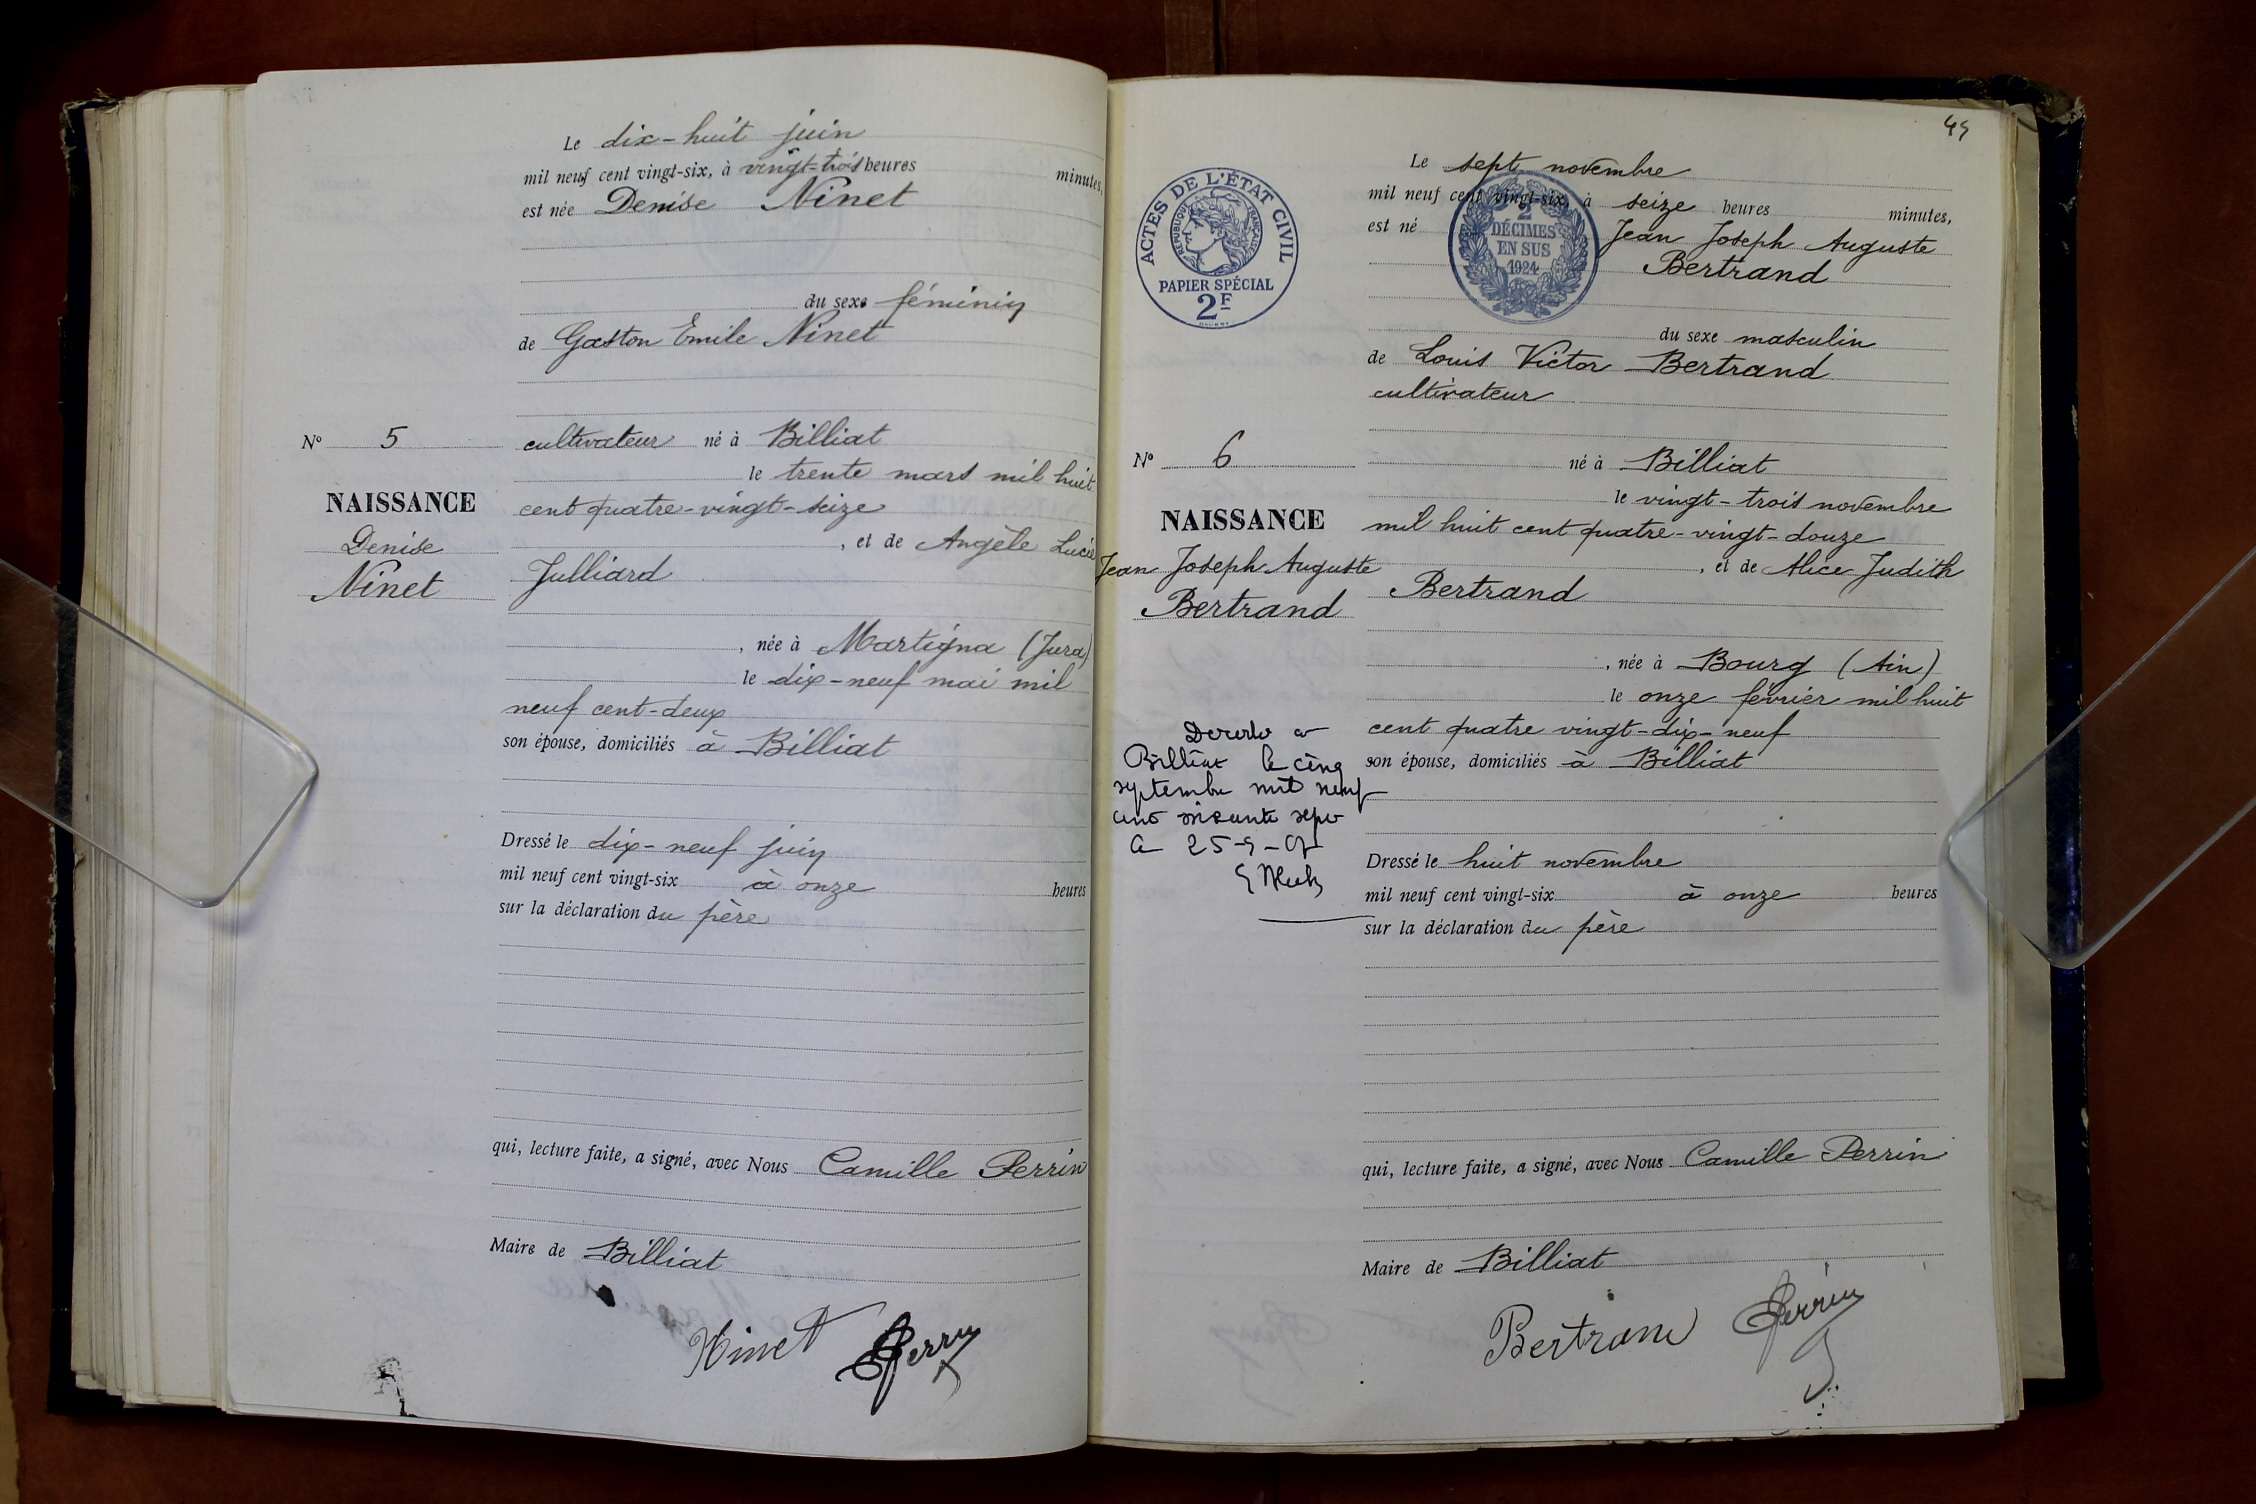 Le dix-huit juin
mil neuf cent vingt-six, à vingt-trois heures minutes,
est née Denise Ninet
du sexe féminin
de Gaston Emile Ninet
N° 5
cultivateur né à Billiat
le trente mars mil huit
NAISSANCE
cent quatre-vingt-seize
Denise
, et de Angèle Lucie
Ninet
Julliard
, née à Martigna (Jura)
le dix-neuf mai mil
neuf cent-deux
son épouse, domiciliés à Billiat
Dressé le dix-neuf juin
mil neuf cent vingt-six à onze heures
sur la déclaration du père
qui, lecture faite, a signé, avec Nous Camille Perrin
Maire de Billiat
Ninet Perrin
ACTES DE L'ÉTAT CIVIL
RÉPUBLIQUE FRANÇAISE
PAPIER SPÉCIAL
2F
2
DÉCIMES
EN SUS
1924
Le sept novembre
mil neuf cent vingt-six, à seize heures minutes,
est né Jean Joseph Auguste
Bertrand
du sexe masculin
de Louis Victor Bertrand
cultivateur
N° 6
né à Billiat
le vingt-trois novembre
NAISSANCE
mil huit cent quatre-vingt-douze
Jean Joseph Auguste
, et de Alice Judith
Bertrand
Bertrand
, née à Bourg (Ain)
le onze février mil huit
cent quatre vingt-dix-neuf
son épouse, domiciliés à Billiat
Décédé à
Billiat le cinq
septembre mil neuf
cent soixante sept
Dressé le huit novembre
mil neuf cent vingt-six à onze heures
sur la déclaration du père
qui, lecture faite, a signé, avec Nous Camille Perrin
Maire de Billiat
Bertrand Perrin